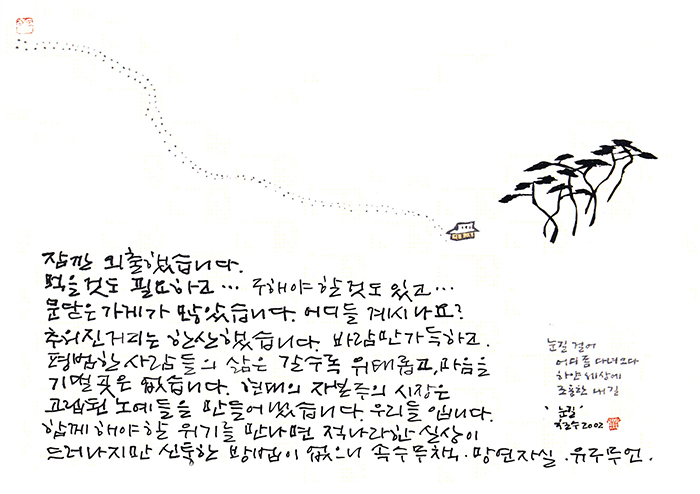 잠깐 외출했습니다.
먹을것도 필요하고… 구해야 할것도 있고…
문닫은가게가 많았습니다. 어디들 계시나요?
추워진거리는 한산했습니다. 바람만가득하고.
평범한 사람들의 삶은 갈수록 위태롭고, 마음을
기댈 곳은 없습니다. 현대의 자본주의 시장은
고립된 노예들을 만들어 냈습니다. 우리들입니다.
함께해야 할 위기를 만나면 적나라한 실상이
드러나지만 신통한 방법이 없으니 속수무책·망연자실·유구무언.
눈길 걸어
어디쯤 다녀오다
하얀 세상에
조용한 내 길
'눈길'
2002